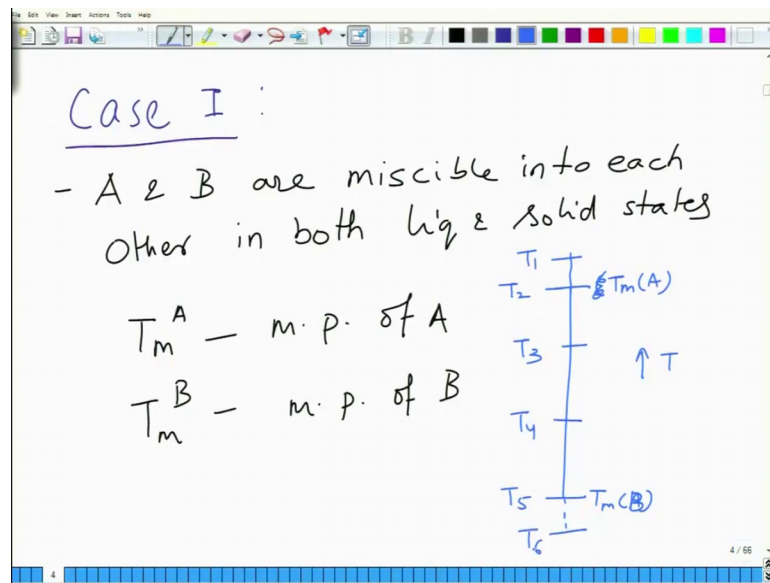 File Edit View Insert Actions Tools Help
B I
Case I :
- A & B are miscible into each
other in both liq & solid states
T_m^A – m.p. of A
T_m^B – m.p. of B
T1
T2 Tm(A)
T3
↑ T
T4
T5 Tm(B)
T6
4 / 66
4